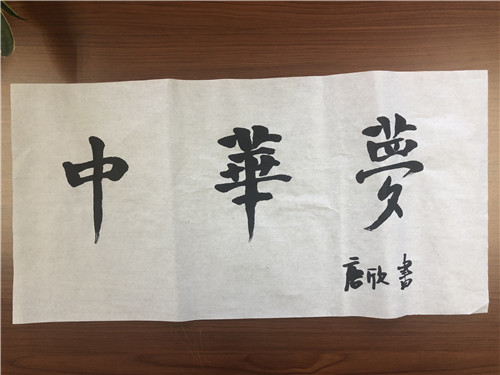 中華夢
唐欣書